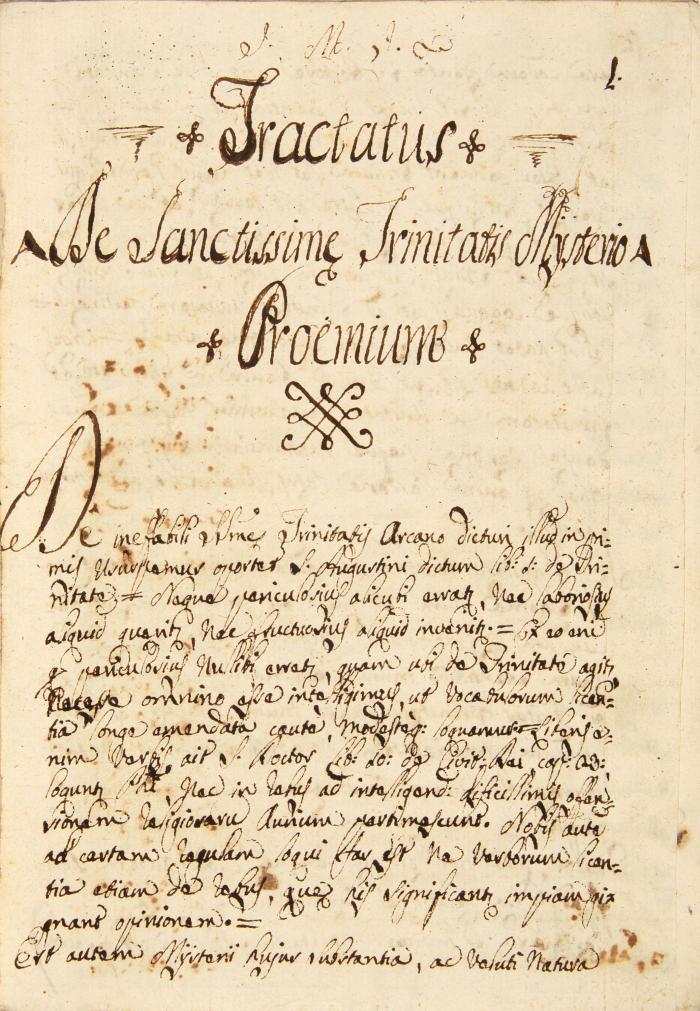 J. M. J.
1.
Tractatus
De Sanctissimę Trinitatis Mysterio
Proëmium
De ineffabili SSmę Trinitatis Arcano dicturi illud in pri-
mis usurpemus oportet S. Augustini dictum lib: 1: de Tri-
nitate = Neque periculosius alicubi erratr, nec laboriosius
aliquid queritr, nec fructuosius aliquid invenitr. = Ex eo eni
q periculosius nullibi erratr, quam ubi de Trinitate agitr
Necesse omnino esse intelligimus, ut vocabulorum licen-
tia longe amendata caute, modesteq: loquamur = Liberis e-
nim verbis, ait S. Doctor lib: 10: de Civit: Dei, cap: 23:
loquuntr Phi, nec in rebus ad intelligend: dificillimis offen-
sionem religiosaru aurium pertimescunt. Nobis aute
ad certam regulam loqui fas est ne verborum licen-
tia etiam de rebus, quę his significantr impiam gi-
gnant opinionem. =
Est autem Mysterii hujus substantia, ac veluti natura